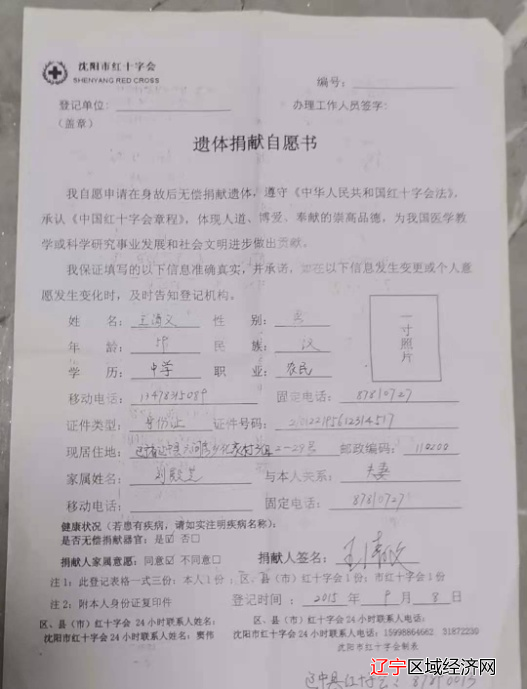 沈阳市红十字会
SHENYANG RED CROSS
编号:
登记单位:
办理工作人员签字:
(盖章)
遗体捐献自愿书
我自愿申请在身故后无偿捐献遗体,遵守《中华人民共和国红十字会法》,
承认《中国红十字会章程》,体现人道、博爱、奉献的崇高品德,为我国医学教
学或科学研究事业发展和社会文明进步做出贡献。
我保证填写的以下信息准确真实,并承诺,如在以下信息发生变更或个人意
愿发生变化时,及时告知登记机构。
姓 名: 王清文 性 别:
一寸照片
年 龄: 59 民 族: 汉
学 历: 中学 职 业: 农民
移动电话: 固定电话: 87810727
证件类型: 身份证 证件号码:
现居住地: 2-29号 邮政编码: 110200
家属姓名: 与本人关系: 夫妻
移动电话: 固定电话: 87810727
健康状况(若患有疾病,请如实注明疾病名称):
是否无偿捐献器官:是☑ 否□
捐献人家属意愿:同意☑ 不同意□ 捐献人签名:王清文
注1:此登记表格一式三份:本人1份;区、县(市)红十字会1份;市红十字会1份
注2:附本人身份证复印件 登记时间:2015 年 9 月 8 日
区、县(市)红十字会24小时联系人姓名: 区、县(市)红十字会24小时联系人电话:
沈阳市红十字会24小时联系人姓名:窦伟 沈阳市红十字会24小时联系人电话:15998864662 31872230
沈阳市红十字会制表
辽宁区域经济网